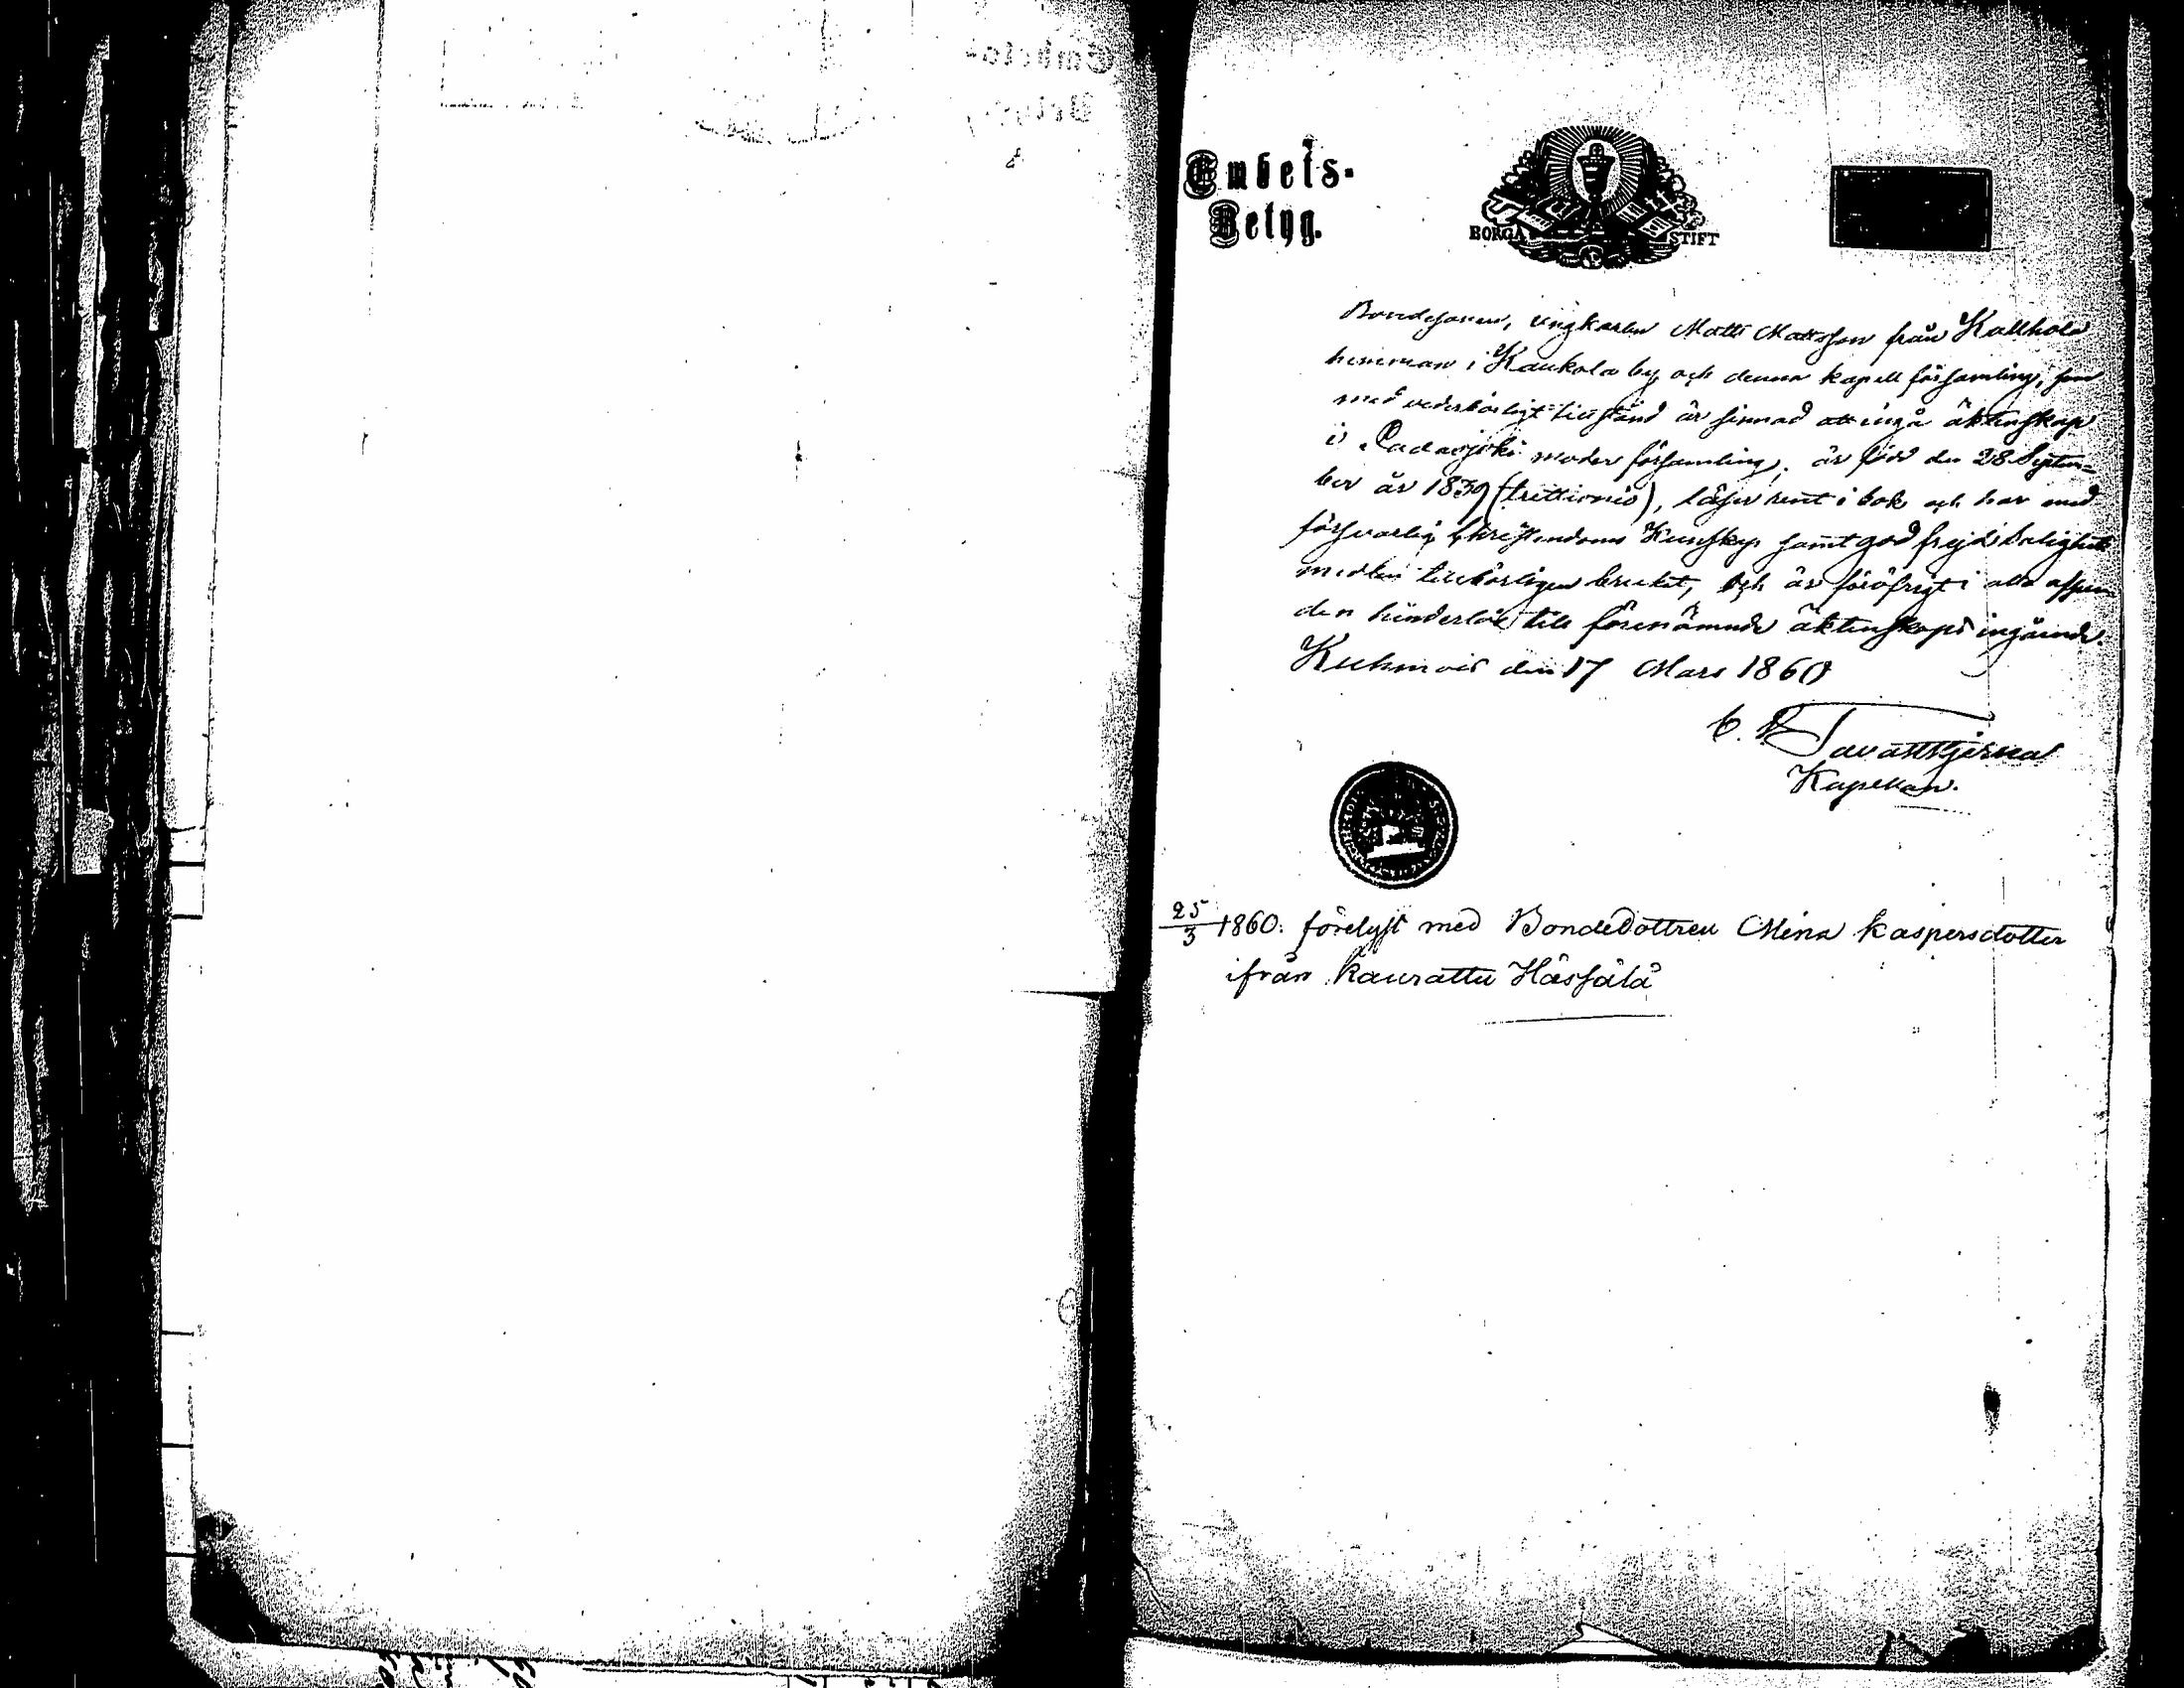 Embets-
Betyg.
BORGÅ STIFT
Bondesonen, ungkarlen Matti Mattsson från Kallhola
hemman i Kaukola by och denna kapell församling, som
med vederbörligt tillstånd är sinnad att ingå äktenskap
i Padasjoki moder församling, är född den 28 Septem-
ber år 1839 (trettionio), läser rent i bok och har med
försvarlig Christendoms Kunskap samt god frejd Salighets
medlen tillbörligen brukat, och är föröfrigt i alla afseen-
den hinderlös till förenämnde äktenskaps ingående.
Kuhmois den 17 Mars 1860
C. R. Tavaststjerna
Kapellan.
25/3 1860. förelyst med BondeDottren Mina Kaspersdotter
ifrån Kaurattu Hässälä